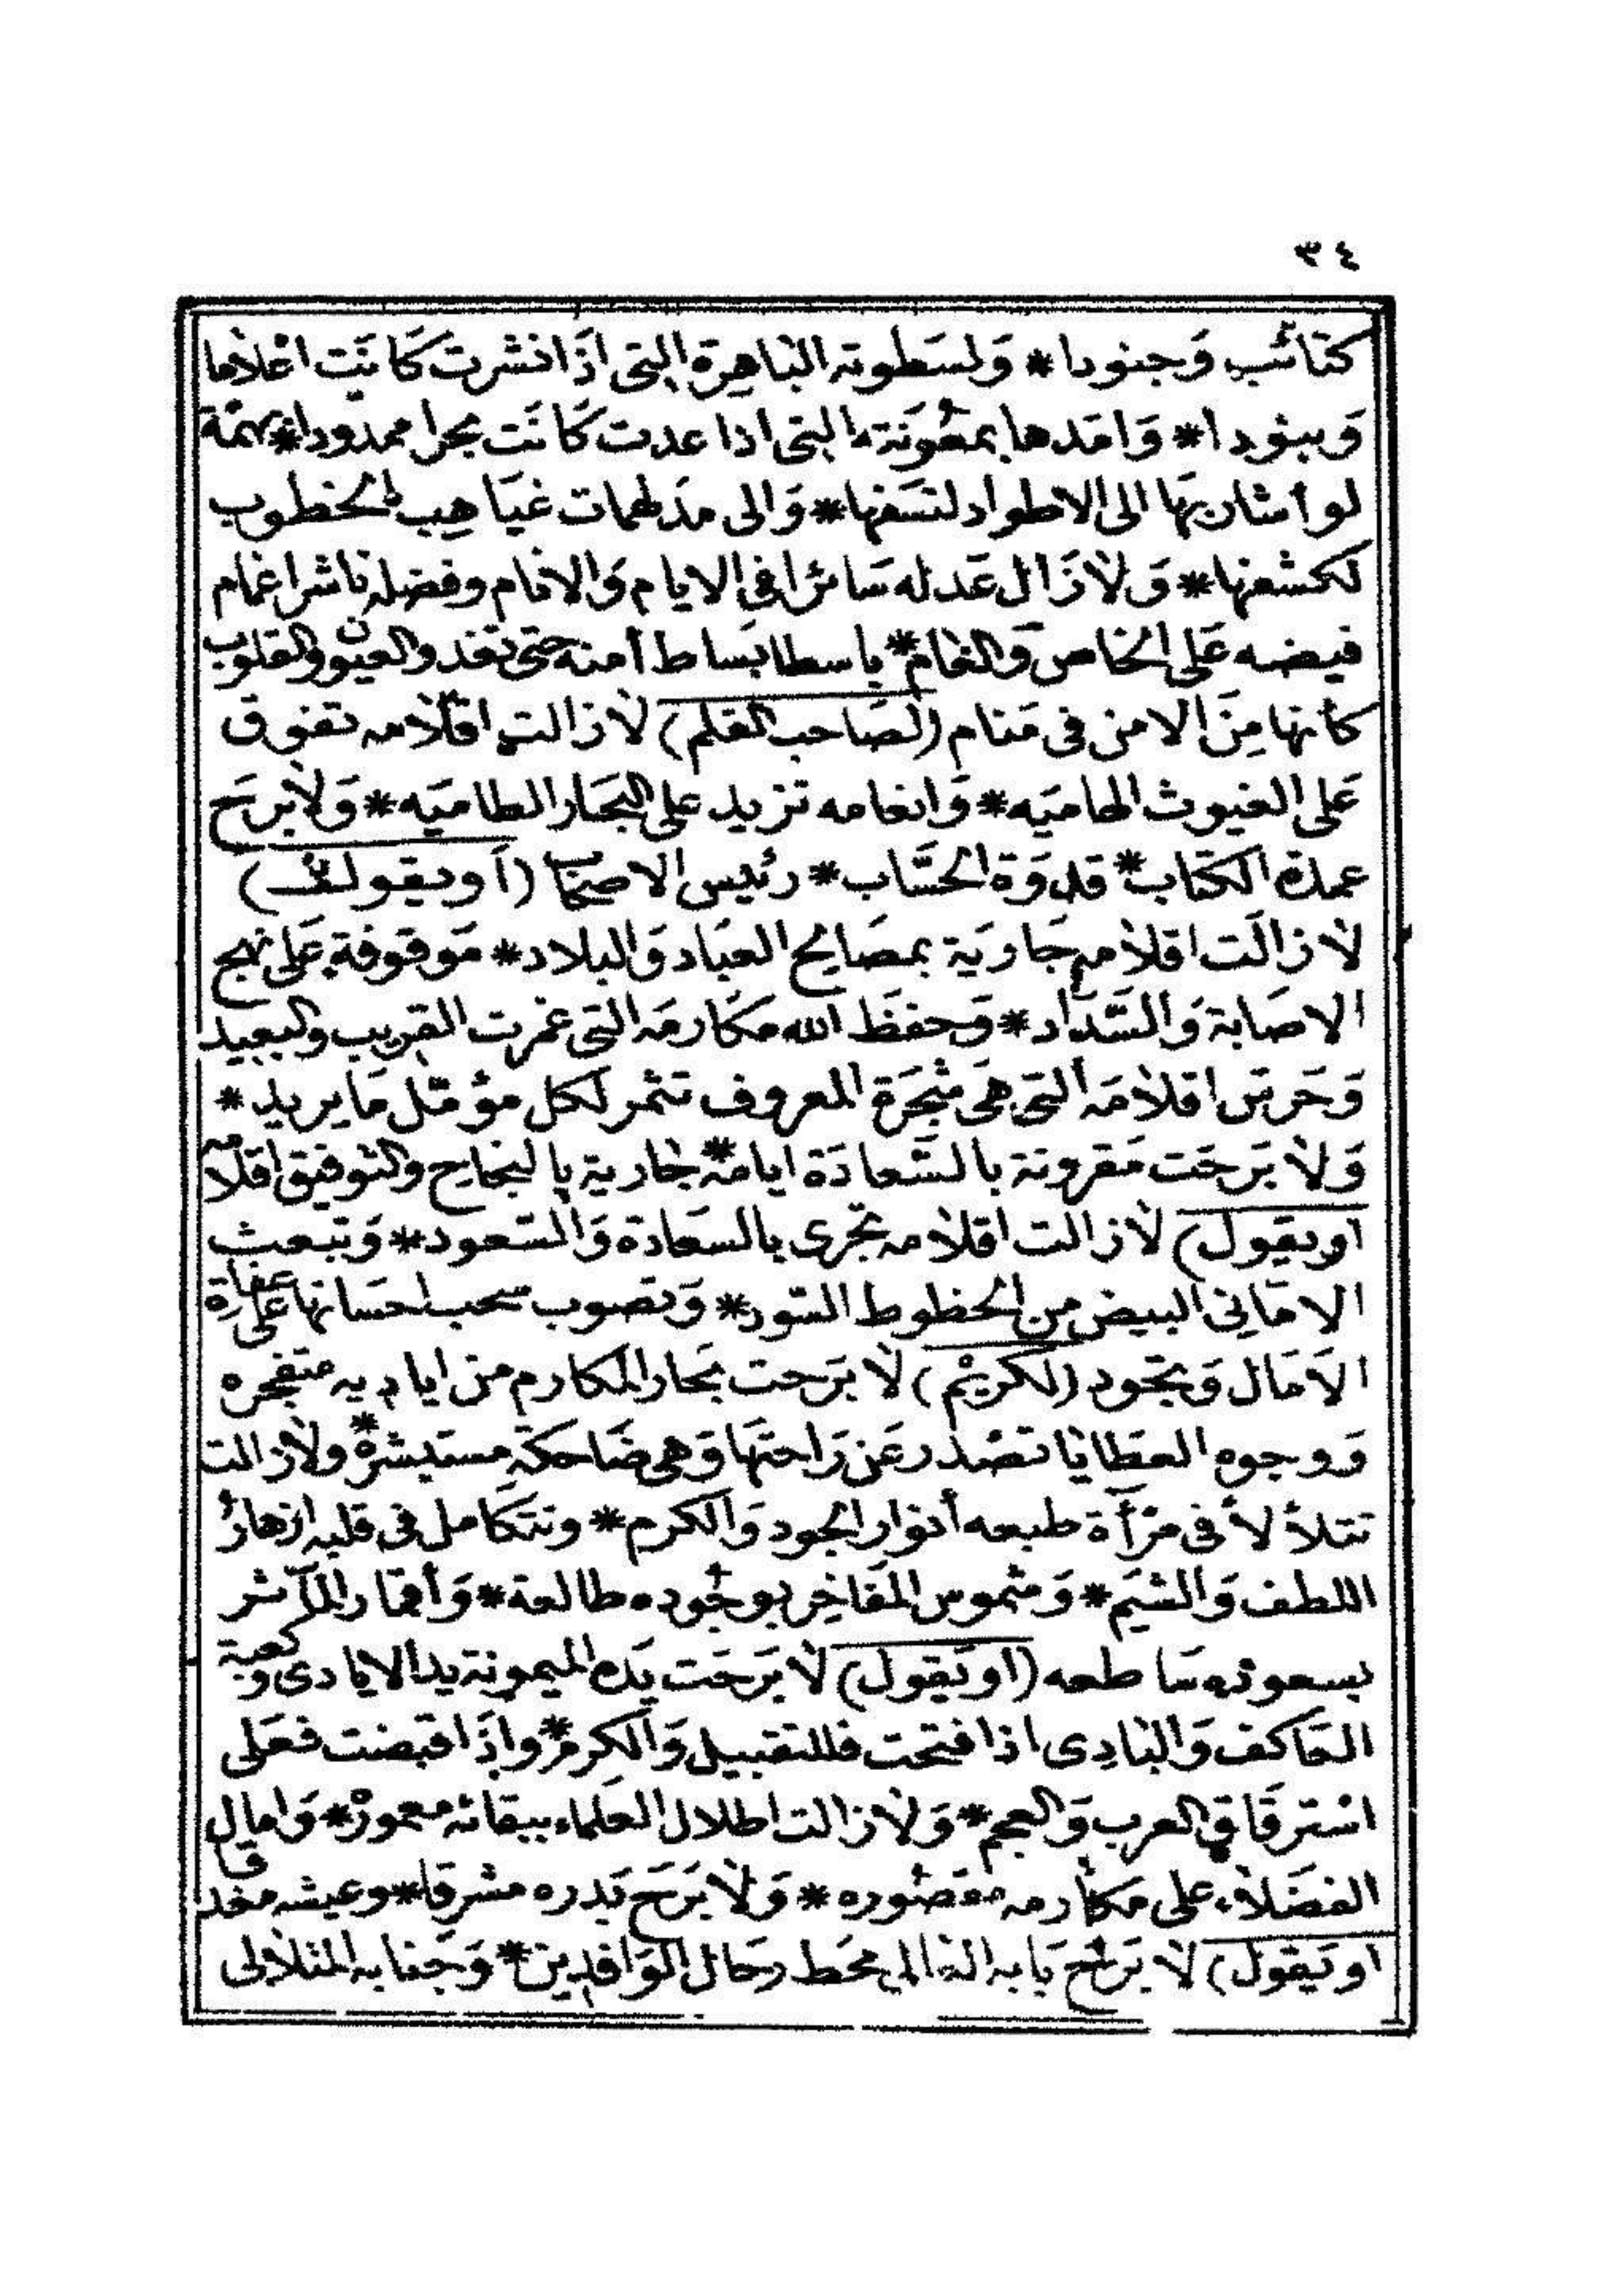 ٣٤
كتائب وَجنودا * وَلسَطوته الباهِرة التي اذَا نشرت كَانَت اعْلاما
وَبنودا * وَامَدها بمعُونَته التي اذا عدت كَانَت بحرا ممدودا * بهمّة
لو أشار بهَا الى الاطواد لنسَفها * وَالى مدَلهمات غيَاهِب الخطوب
لكشفها * وَلاَزَال عَدله سَائرا في الايام وَالانام وفضله ناشرا غمام
فيضه عَلى الخاص وَالعَام * باسطا بسَاط أمنه حتى تغدو العيون والقلوب
كأنها مِنَ الامن فى مَنام (لصَاحب القلم) لاَزالت اقلامه تفوق
عَلى الغيوث الهاميَه * وَانعامه تزيد على البحَار الطاميَه * وَلاَبرَح
عمدة الكتاب * قدوَة الحسَّاب * رئيس الاصحَاب (أويقول)
لاَزالَت اقلامه جَاريَة بمصَالح العبَاد وَالبلاد * مَوقوفة عَلى نهج
الاصَابة وَالسَّدَاد * وَحفظَ الله مكَارمَه التى غمرت القريب والبعيد
وَحَرسَ اقلامَه التى هىَ شجَرَة المعروف تثمر لكل مؤمّل مَايريد *
وَلاَ بَرحَت مَقرونة بالسَّعادَة ايامه * جَارية بالنجاح والتوفيق اقلامه
اويقول) لاَزالت اقلامه تجرى بالسعَادة وَالسّعود * وَتبعث
الامَانِى البيض من الحظوط السّود * وَتصوب سحب احسَانها على عفاة
الآمَال وَتجود (لكريْم) لاَ بَرَحت بحَار المكارم من اياديه متفجره
وَوجوه العطَايَا تصْدر عَن رَاحتهَا وَهى ضَاحكة مستبشرة * ولازالت
تتلأ لأ فى مرْآة طبعه أنوار الجود وَالكرم * وتتكامل فى قلبه ازهارُ
اللطف وَالشيَم * وَشموس المفَاخِر بوجُوده طالعة * وَأقمار المآثر
بسعوده سَاطعه (اويَقول) لاَ بَرَحَت يَده الميمونة يد الايادى وكعبة
العَاكف وَالبَادِى اذا فتحت فللتقبيل وَالكرم * وإذَا قبضت فعَلى
اسْترقَاق العرب وَالعجم * وَلاَزالت اطلال العلماء ببقائه معمورْ * وَامال
الفضَلاء على مكَارمه مقصُوره * وَلاَ بَرَح بَدره مشرقا * وعيشه مغدقا
اويَقول) لاَ بَرَح بَابه العَالى محَط رحَال الوَافِدِين * وَجنابه المتلالى